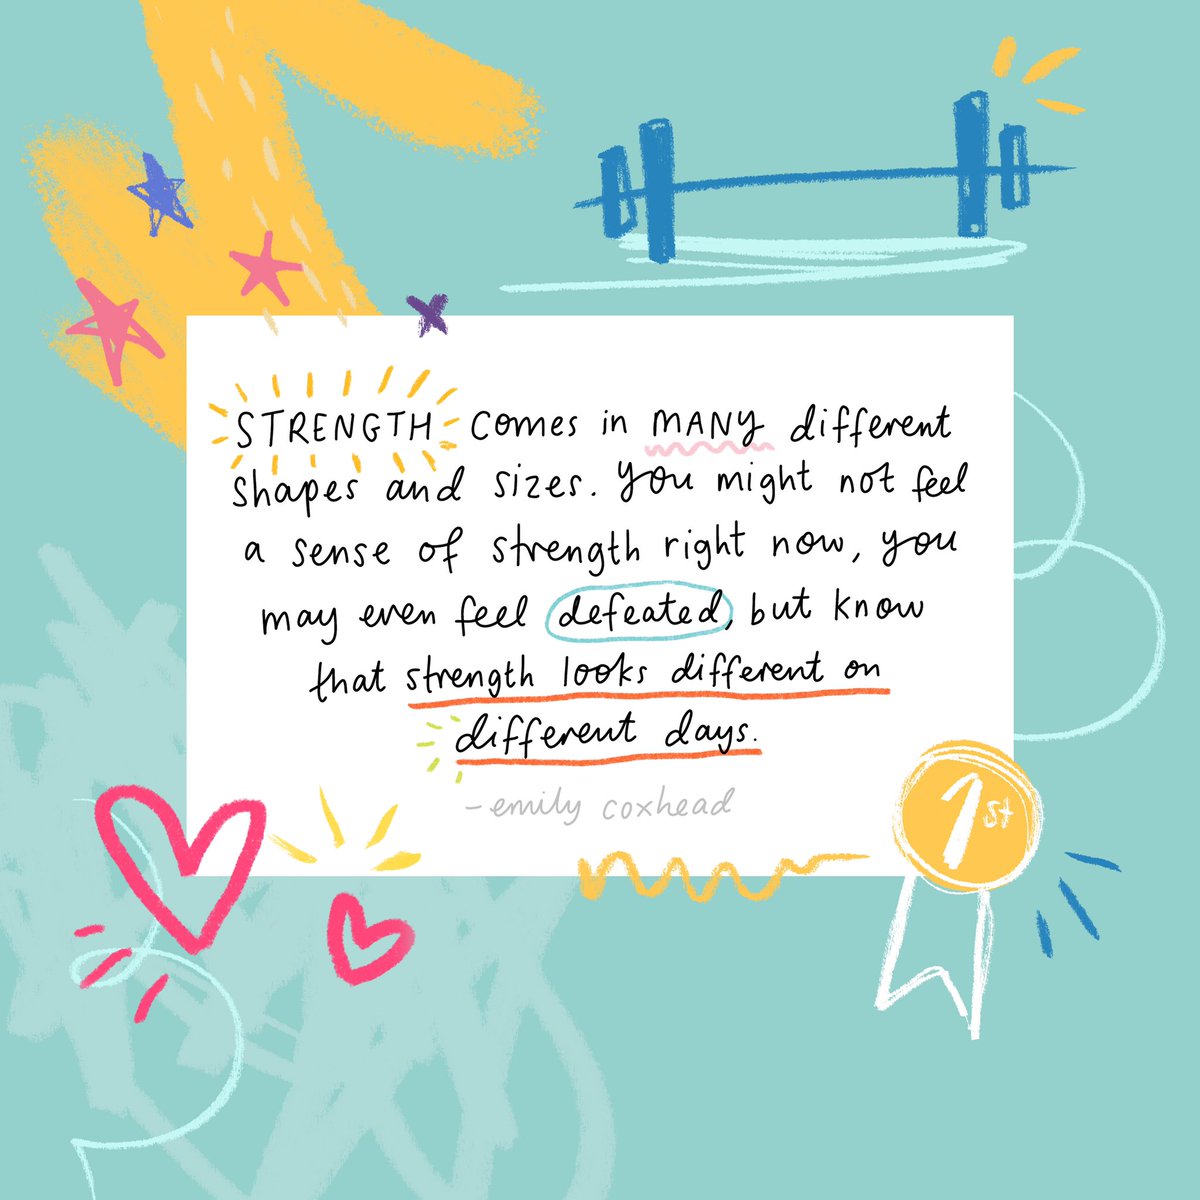 STRENGTH comes in MANY different
shapes and sizes. You might not feel
a sense of strength right now, you
may even feel defeated, but know
that strength looks different on
different days.
- emily coxhead
1st